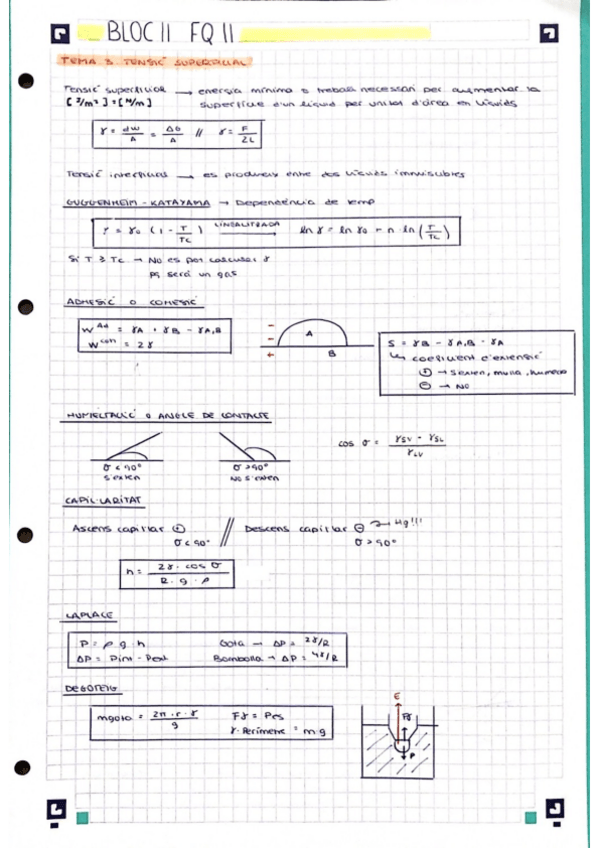 BLOC II FQ II
TEMA 3. TENSIÓ SUPERFICIAL
Tensió superficial → energia mínima o treball necessari per augmentar la
[J/m²] = [N/m] superfície d'un líquid per unitat d'àrea en líquids
γ = dW/A = ΔG/A // γ = F/2L
Tensió interfacial → es produeix entre dos líquids immiscibles
GUGGENHEIM - KATAYAMA → Dependència de temp
γ = γ₀ (1 - T/Tc) LINEALITZADA → ln γ = ln γ₀ + n · ln (T/Tc)
Si T ≥ Tc → No es pot calcular γ
pq serà un gas
ADHESIÓ O COHESIÓ
W^Ad = γA + γB - γA,B
W^coh = 2γ
A
B
S = γB - γA,B - γA
↳ coeficient d'extensió
⊕ → s'exten, mulla, humecta
⊖ → NO
HUMECTACIÓ O ANGLE DE CONTACTE
σ < 90°
s'exten
σ > 90°
No s'exten
cos σ = γSV - γSL / γLV
CAPIL·LARITAT
Ascens capil·lar ⊕ // Descens capil·lar ⊖ → Hg!!!
σ < 90° σ > 90°
h = 2γ · cos σ / R · g · ρ
LAPLACE
P = ρ g · h Gota → ΔP = 2γ/R
ΔP = Pint - Pext Bombolla → ΔP = 4γ/R
DEGOTEIG
mgota = 2π · r · γ / g Fγ = Pes
γ · Perímetre = m·g
E
Fγ
P